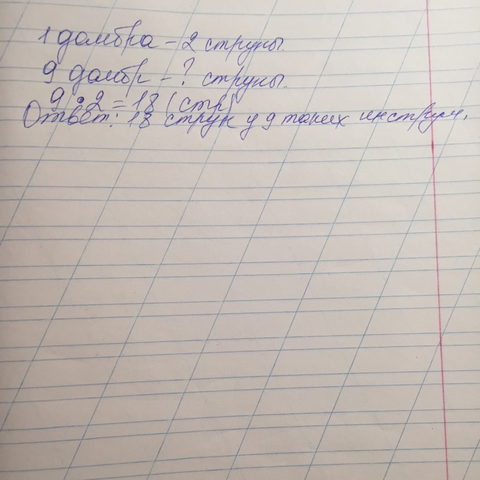 1 домбра – 2 струны.
9 домбр – ? струны.
9 · 2 = 18 (стр)
Ответ: 18 струн у 9 таких инструм.